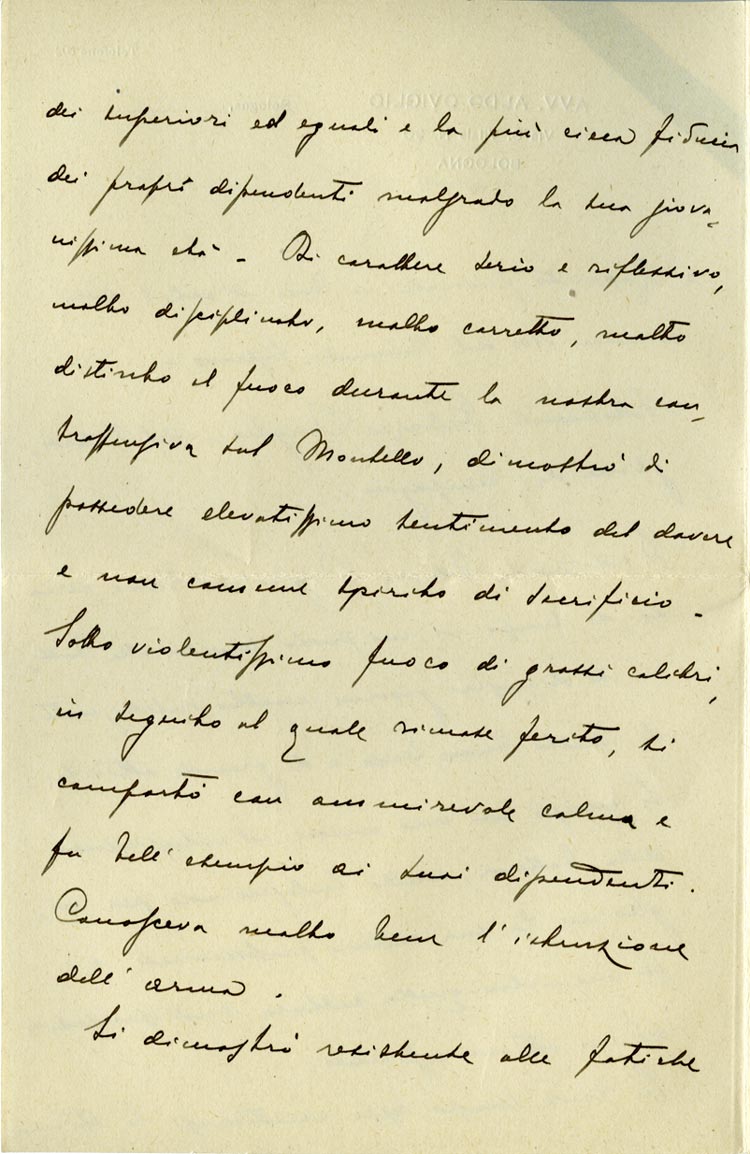 dei superiori ed eguali e la più cieca fiducia
dei proprî dipendenti malgrado la sua giova-
nissima età - Di carattere serio e riflessivo,
molto disciplinato, molto corretto, molto
distinto al fuoco durante la nostra con-
troffensiva sul Montello, dimostrò di
possedere elevatissimo sentimento del dovere
e non comune spirito di sacrificio -
Sotto violentissimo fuoco di grossi calibri,
in seguito al quale rimase ferito, si
comportò con ammirevole calma e
fu bell'esempio ai suoi dipendenti.
Conosceva molto bene l'istruzione
dell'arma.
Si dimostrò resistente alle fatiche
AVV. ALDO OVIGLIO
BOLOGNA